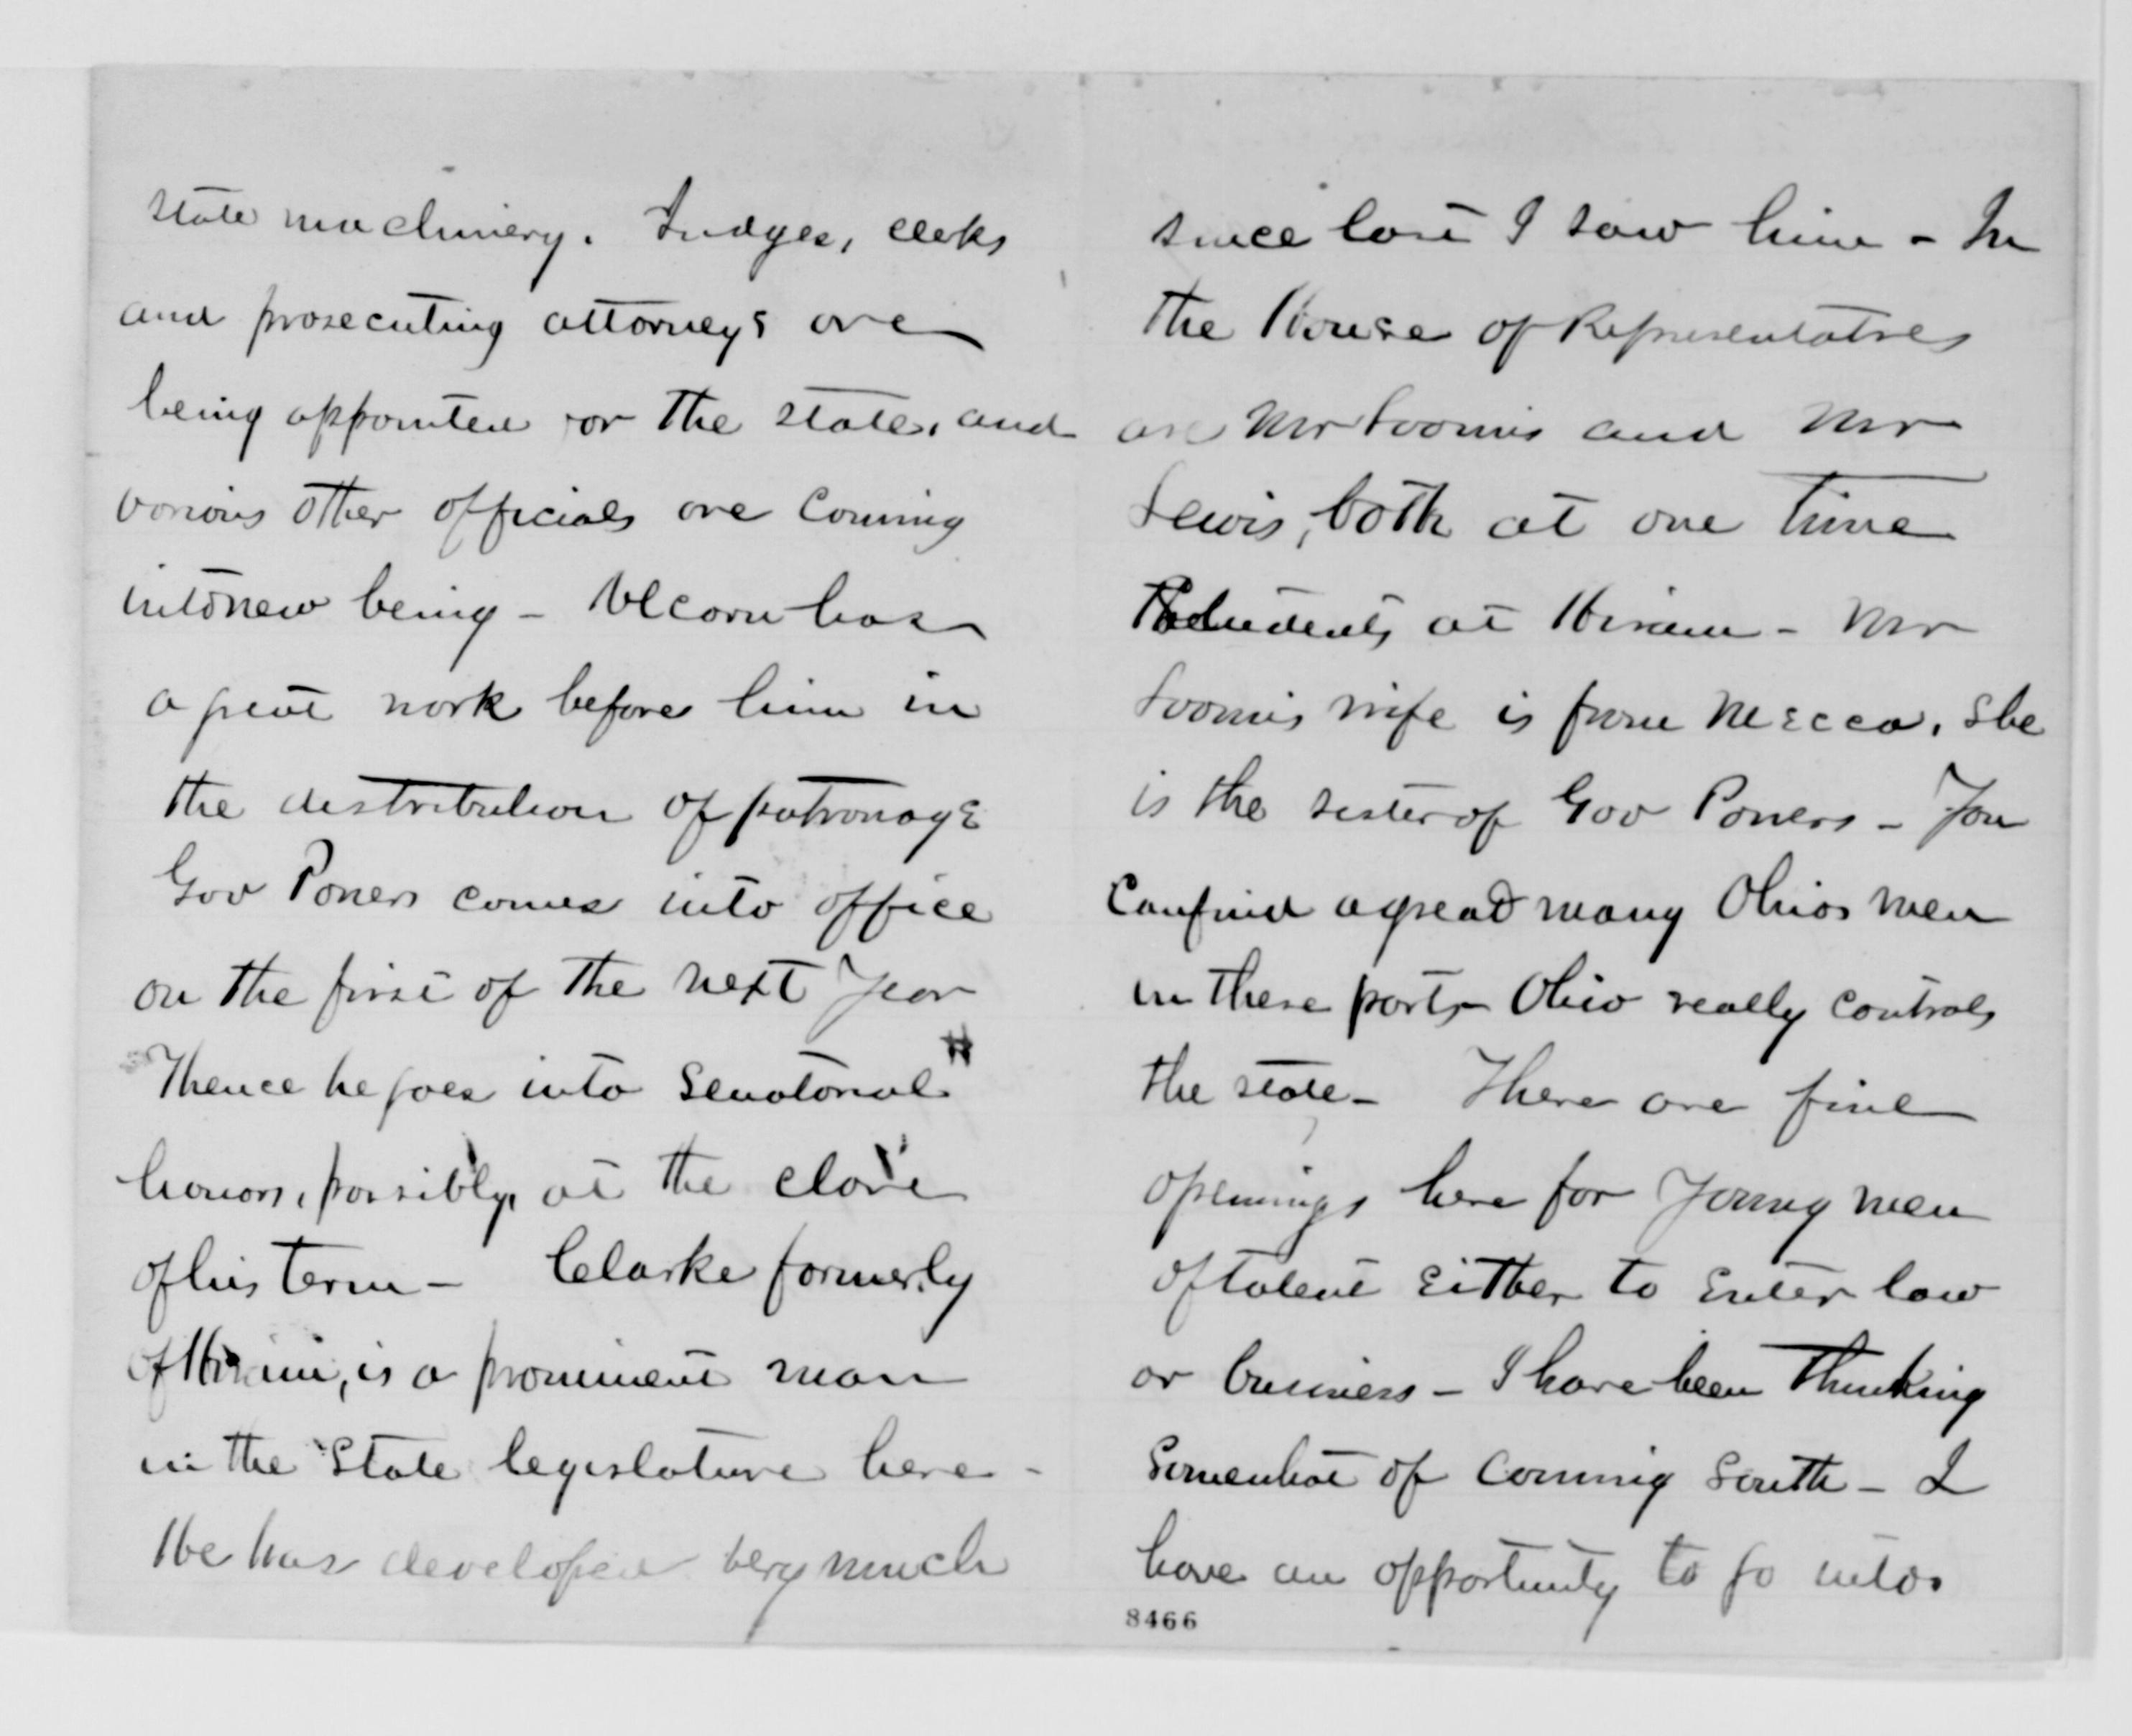 state machinery. Judges, clerks
and prosecuting attorneys are
being appointed for the state, and
various other officials are coming
into new being - Alcorn has
a great work before him in
the distribution of patronage
Gov Powers comes into office
on the first of the next year
Thence he goes into Senatorial
honors, possibly, at the close
of his term - Clarke formerly
of Hiram, is a prominent man
in the State legislature here -
He has developed very much
since last I saw him - In
the House of Representatives
are Mr Loomis and Mr
Lewis, both at one time
students at Hiram - Mr
Loomis wife is from Mecca. She
is the sister of Gov Powers - You
can find a great many Ohio men
in these parts - Ohio really controls
the state - There are fine
openings here for young men
of talent either to enter law
or business - I have been thinking
somewhat of coming South - I
have an opportunity to go into
8466